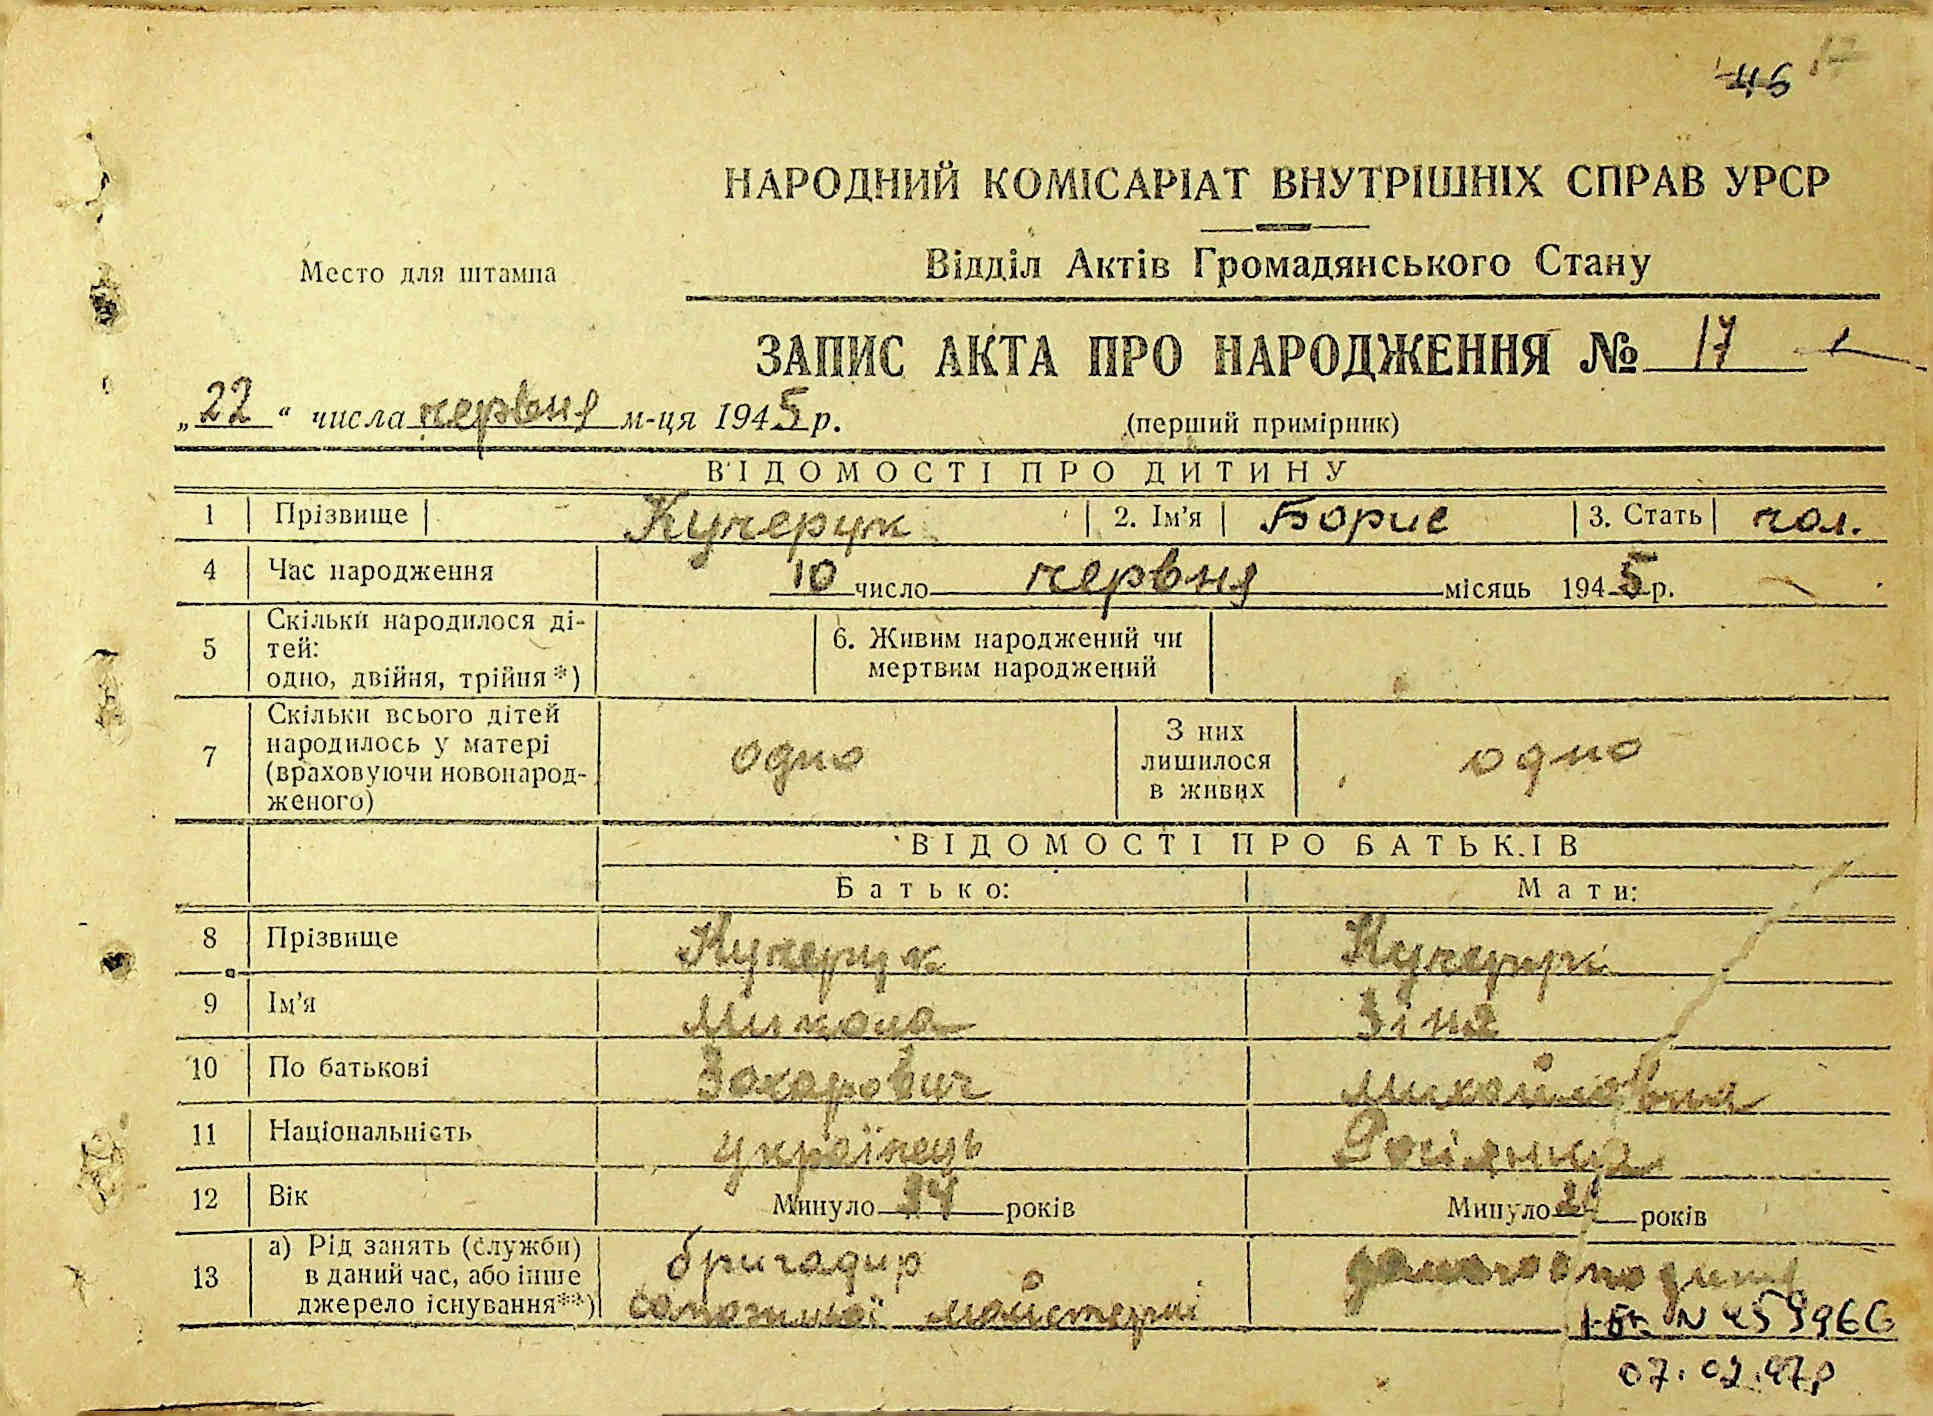 46 17
НАРОДНИЙ КОМІСАРІАТ ВНУТРІШНІХ СПРАВ УРСР
Место для штампа
Відділ Актів Громадянського Стану
ЗАПИС АКТА ПРО НАРОДЖЕННЯ № 17
„22“ числа червня м-ця 1945 р. (перший примірник)
ВІДОМОСТІ ПРО ДИТИНУ
1 Прізвище Кучерук 2. Ім'я Борис 3. Стать чол.
4 Час народження 10 число червня місяць 1945 р.
5 Скільки народилося ді-
тей:
одно, двійня, трійня*)
6. Живим народжений чи
мертвим народжений
7 Скільки всього дітей
народилось у матері
(враховуючи новонарод-
женого)
одно
З них
лишилося
в живих
одно
ВІДОМОСТІ ПРО БАТЬКІВ
Батько: Мати:
8 Прізвище Кучерук Кучерук
9 Ім'я Микола Зіна
10 По батькові Захарович Михайловна
11 Національність українець Росіянка
12 Вік Минуло років Минуло років
13 а) Рід занять (служби)
в даний час, або інше
джерело існування**)
бригадир
сапожної майстерні
домогосподиня
І-БК N 459966
07.02.47р